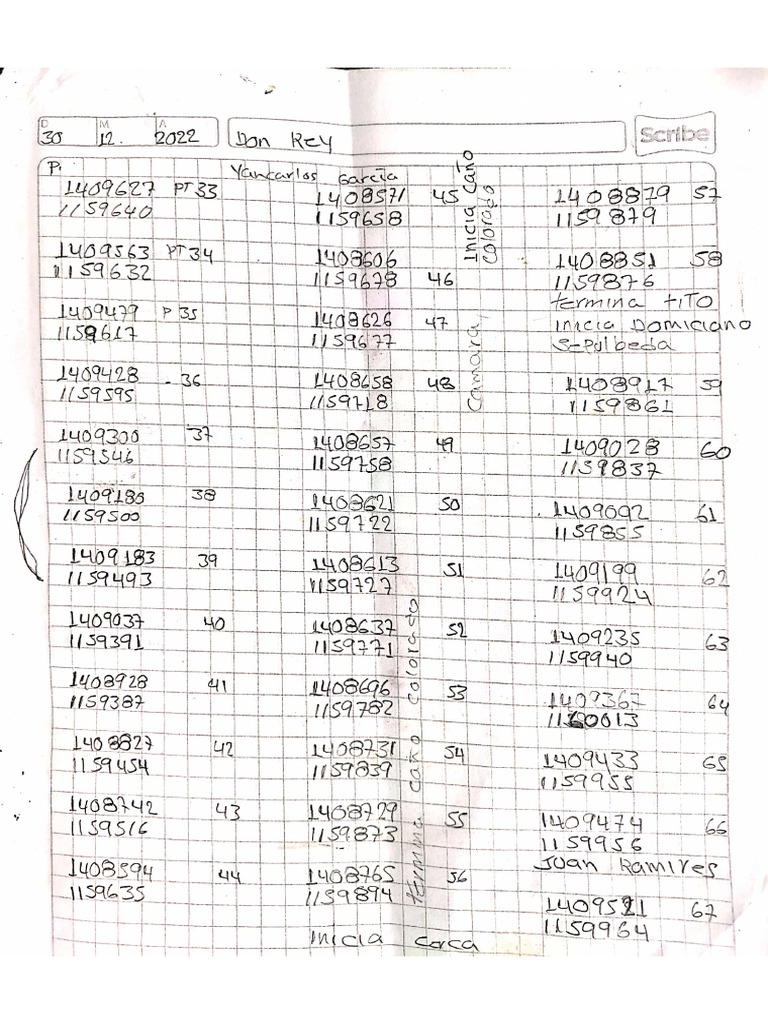 D M A
30 12. 2022 Don Rey Scribe
P. Yancarlos García
1409627 PT 33
1159640
1409563 PT 34
1159632
1409479 P 35
1159617
1409428 - 36
1159595
1409300 37
1159546
1409180 38
1159500
1409183 39
1159493
1409037 40
1159391
1408928 41
1159387
1408827 42
1159454
1408742 43
1159516
1408594 44
1159635
1408571 45
1159658
1408606
1159678 46
1408626 47
1159677
1408658 48
1159718
1408657 49
1159758
1408621 50
1159722
1408613 51
1159727
1408637 52
1159771
1408696 53
1159782
1408731 54
1159839
1408729 55
1159873
1408765 56
1159894
Inicia cerca
Inicia Caño
Colorado
Camara
termina caño colorado
1408879 57
1159879
1408851 58
1159876
termina tito
inicia Domiciano
Sepulbeda
1408917 59
1159861
1409028 60
1159837
1409092 61
1159855
1409199 62
1159924
1409235 63
1159940
1409367 64
1160013
1409433 65
1159955
1409474 66
1159956
Juan Ramires
1409521 67
1159964